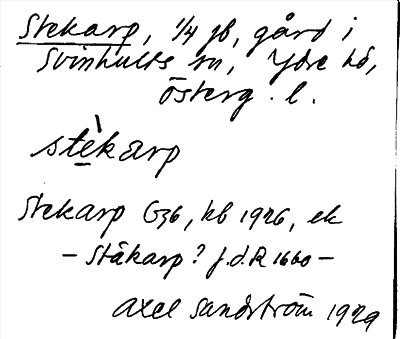 Stekarp, 1/4 jb, gård i
Svinhults sn, Ydre hd,
Österg. l.
stèkarp
Stekarp G36, kb 1926, ek
– Ståkarp? j.d.R 1660 –
Axel Sandström 1929